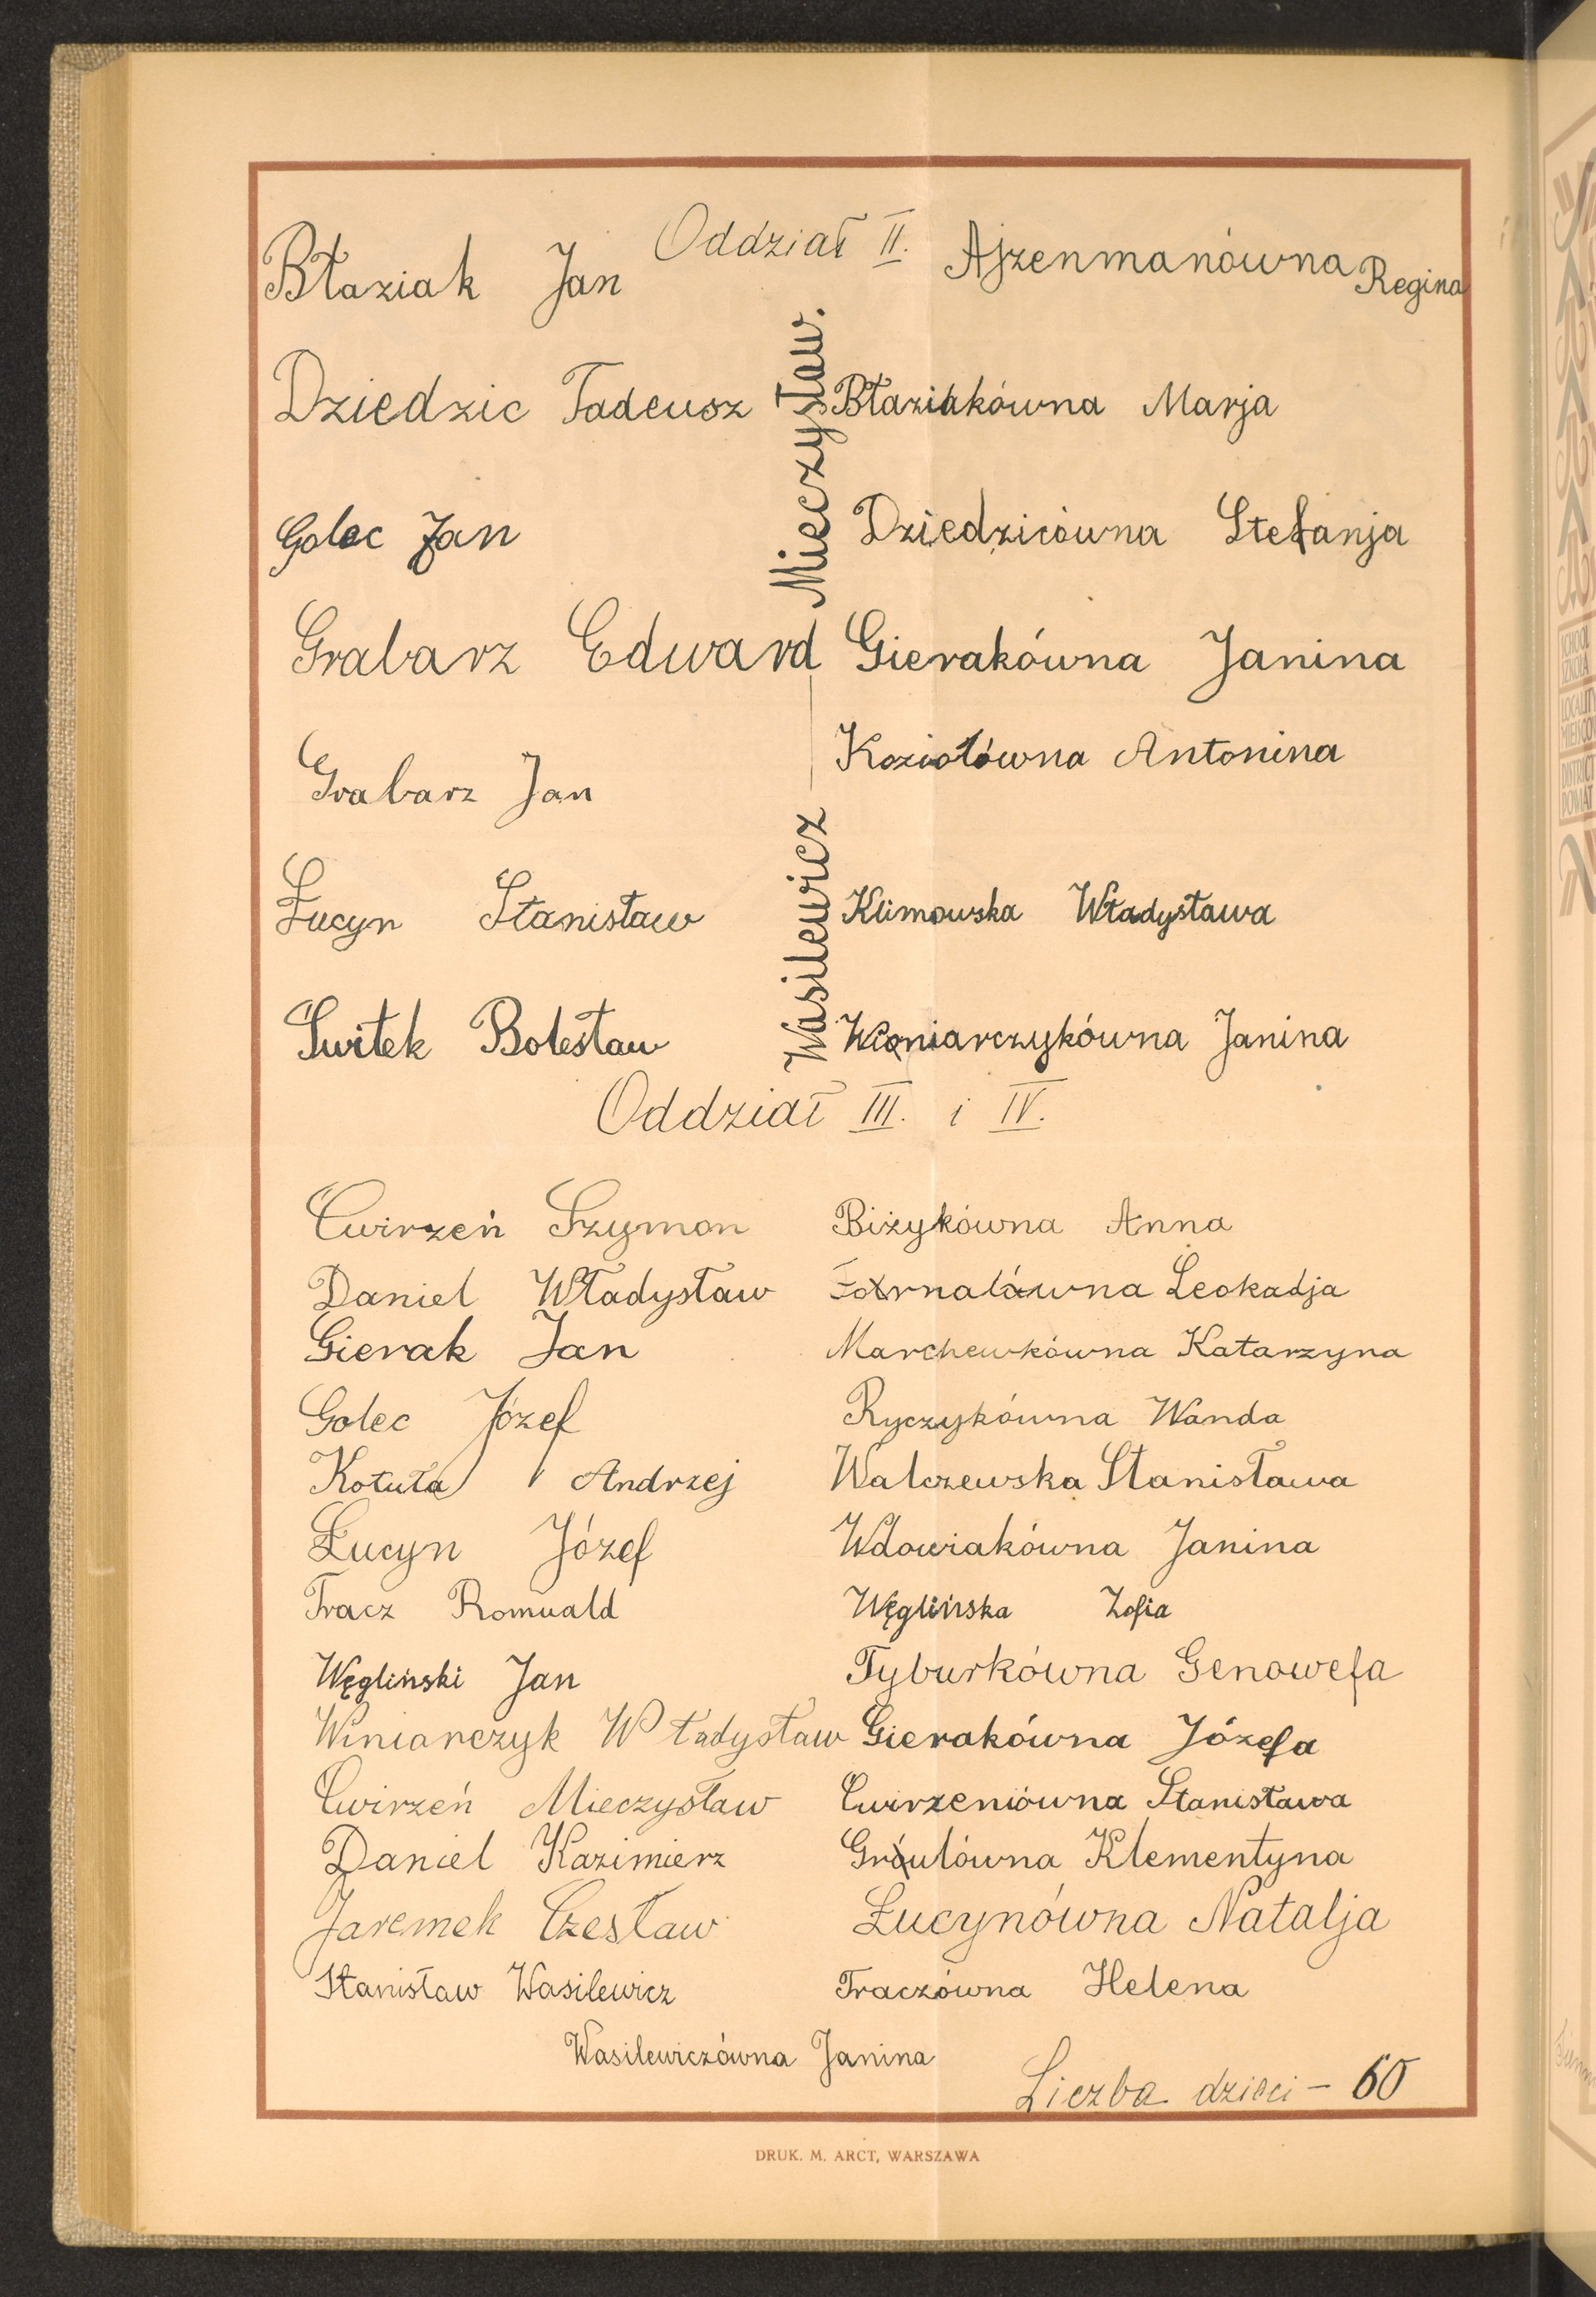 Oddział II.
Błaziak Jan
Dziedzic Tadeusz
Golec Jan
Grabarz Edward
Grabarz Jan
Łucyn Stanisław
Świtek Bolesław
Wasilewicz Mieczysław.
Ajzenmanówna Regina
Błaziakówna Marja
Dziedzicówna Stefanja
Gierakówna Janina
Koziołówna Antonina
Klimowska Władysława
Winiarczykówna Janina
Oddział III. i IV.
Ćwirzeń Szymon
Daniel Władysław
Gierak Jan
Golec Józef
Kotuła Andrzej
Łucyn Józef
Tracz Romuald
Węgliński Jan
Winiarczyk Władysław
Ćwirzeń Mieczysław
Daniel Kazimierz
Jaremek Czesław
Stanisław Wasilewicz
Biżykówna Anna
Leokadja
Marchewkówna Katarzyna
Ryczykówna Wanda
Walczewska Stanisława
Wdowiakówna Janina
Węglińska Zofia
Tyburkówna Genowefa
Gierakówna Józefa
Ćwirzeniówna Stanisława
Klementyna
Łucynówna Natalja
Traczówna Helena
Wasilewiczówna Janina
Liczba dzieci – 60
DRUK. M. ARCT, WARSZAWA
SCHOOL
SZKOŁA
LOCALITY
DISTRICT
POWIAT